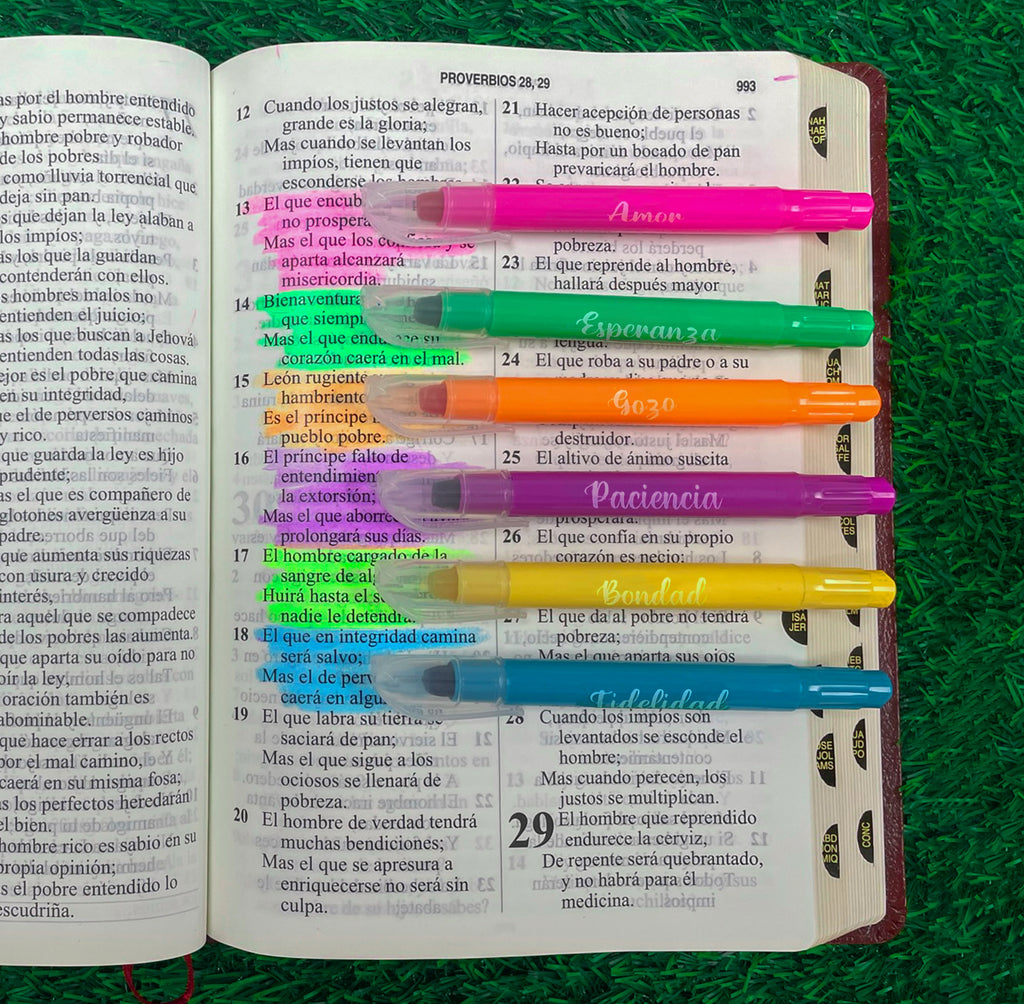 PROVERBIOS 28, 29
993
as por el hombre entendido
y sabio permanece estable.
hombre pobre y robador
de los pobres
como lluvia torrencial que
deja sin pan.
s que dejan la ley alaban a
los impíos;
as los que la guardan
contenderán con ellos.
s hombres malos no
entienden el juicio;
as los que buscan a Jehová
entienden todas las cosas.
ejor es el pobre que camina
en su integridad,
ue el de perversos caminos
y rico.
que guarda la ley es hijo
prudente;
as el que es compañero de
glotones avergüenza a su
padre.
que aumenta sus riquezas
con usura y crecido
interés,
ra aquel que se compadece
de los pobres las aumenta.
que aparta su oído para no
oír la ley,
oración también es
abominable.
que hace errar a los rectos
por el mal camino,
caerá en su misma fosa;
as los perfectos heredarán
el bien.
hombre rico es sabio en su
propia opinión;
as el pobre entendido lo
escudriña.
12 Cuando los justos se alegran,
grande es la gloria;
Mas cuando se levantan los
impíos, tienen que
esconderse los hombres.
13 El que encub
no prospera
Mas el que los confiesa y se
aparta alcanzará
misericordia.
14 Bienaventura
que siemp
Mas el que endurece su
corazón caerá en el mal.
15 León rugiente
hambriento
Es el príncipe
pueblo pobre.
16 El príncipe falto de
entendimien
la extorsión;
Mas el que aborrece
prolongará sus días.
17 El hombre cargado de la
sangre de al
Huirá hasta el s
nadie le detendrá.
18 El que en integridad camina
será salvo;
Mas el de perv
caerá en algu
19 El que labra su tierra se
saciará de pan;
Mas el que sigue a los
ociosos se llenará de
pobreza.
20 El hombre de verdad tendrá
muchas bendiciones;
Mas el que se apresura a
enriquecerse no será sin
culpa.
21 Hacer acepción de personas
no es bueno;
Hasta por un bocado de pan
prevaricará el hombre.
22
Amor
pobreza.
23 El que reprende al hombre,
hallará después mayor
Esperanza
lengua.
24 El que roba a su padre o a su
Gozo
destruidor.
25 El altivo de ánimo suscita
Paciencia
prosperará.
26 El que confía en su propio
corazón es necio;
Bondad
27 El que da al pobre no tendrá
pobreza;
Mas el que aparta sus ojos
Fidelidad
28 Cuando los impíos son
levantados se esconde el
hombre;
Mas cuando perecen, los
justos se multiplican.
29 El hombre que reprendido
endurece la cerviz,
De repente será quebrantado,
y no habrá para él
medicina.
NAH
HAB
SOF
ISA
JER
JOL
AMS
JUD
CONC